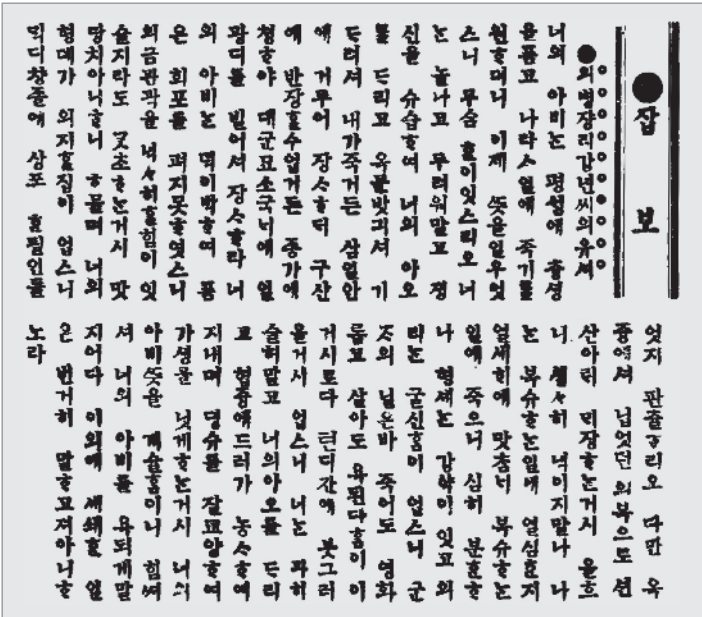 ●잡 보
●의병쟝리강년씨의유셔
너의 아비는 평ᄉᆡᆼ에 츙셩
을품고 나라ㅅ일에 죽기를
원ᄒᆞ더니 이제 ᄯᅳᆺ을일우엇
스니 무슴 ᄒᆞᆫ이잇스리오 너
는 놀나고 무려워말고 졍
신을 슈습ᄒᆞ여 너의 아오
를 ᄃᆞ리고 옥문밧긔셔 기
ᄃᆞ려셔 내가죽거든 삼일안
에 거두어 장ᄉᆞᄒᆞ되 구산
에 반장ᄒᆞᆯ수업거든 종가에
쳥ᄒᆞ야 대군묘소국ᄂᆡ에 일
광디를 빌어셔 장ᄉᆞᄒᆞ라 너
의 아비는 명이박ᄒᆞ여 품
은 회포를 펴지못ᄒᆞ엿스니
의금관곽을 넉넉히ᄒᆞᆯ힘이 잇
슬지라도 ᄀᆞᆺ초ᄒᆞ는거시 맛
당치아니ᄒᆞ니 ᄒᆞ물며 너의
형뎨가 의지ᄒᆞᆯ집이 업스니
긱디창졸에 상포 ᄒᆞᆫ필인들
엇지 판츌ᄒᆞ리오 다만 옥
즁에셔 닙엇던 의복으로 션
산아ᄅᆡ ᄒᆞ는거시 올흐
니 셥셥히 넉이지말나 나
는 복슈ᄒᆞ는일에 열심ᄒᆞᆫ지
열세ᄒᆡ에 맛ᄎᆞᆷᄂᆡ 복슈ᄒᆞ는
일에 죽으니 심히 분ᄒᆞᆫᄒᆞ
나 형셰는 강약이 잇고 의
리는 굴신ᄒᆞᆷ이 업스니 군
ᄌᆞ의 닐은바 죽어도 영화
롭고 살아도 욕된다ᄒᆞᆷ이 이
거시로다 텬디간에 붓그러
울거시 업스니 너는 과히
슬허말고 너의아오를 ᄃᆞ리
고 협즁에드러가 농ᄉᆞᄒᆞ여
지내며 명슈를 잘교양ᄒᆞ여
가셩을 닛게ᄒᆞ는거시 너의
아비ᄯᅳᆺ을 계슐ᄒᆞᆷ이니 힘써
셔 너의 아비를 욕되게말
지어다 이외에 세쇄ᄒᆞᆫ 일
은 번거히 말ᄒᆞ고져아니ᄒᆞ
노라